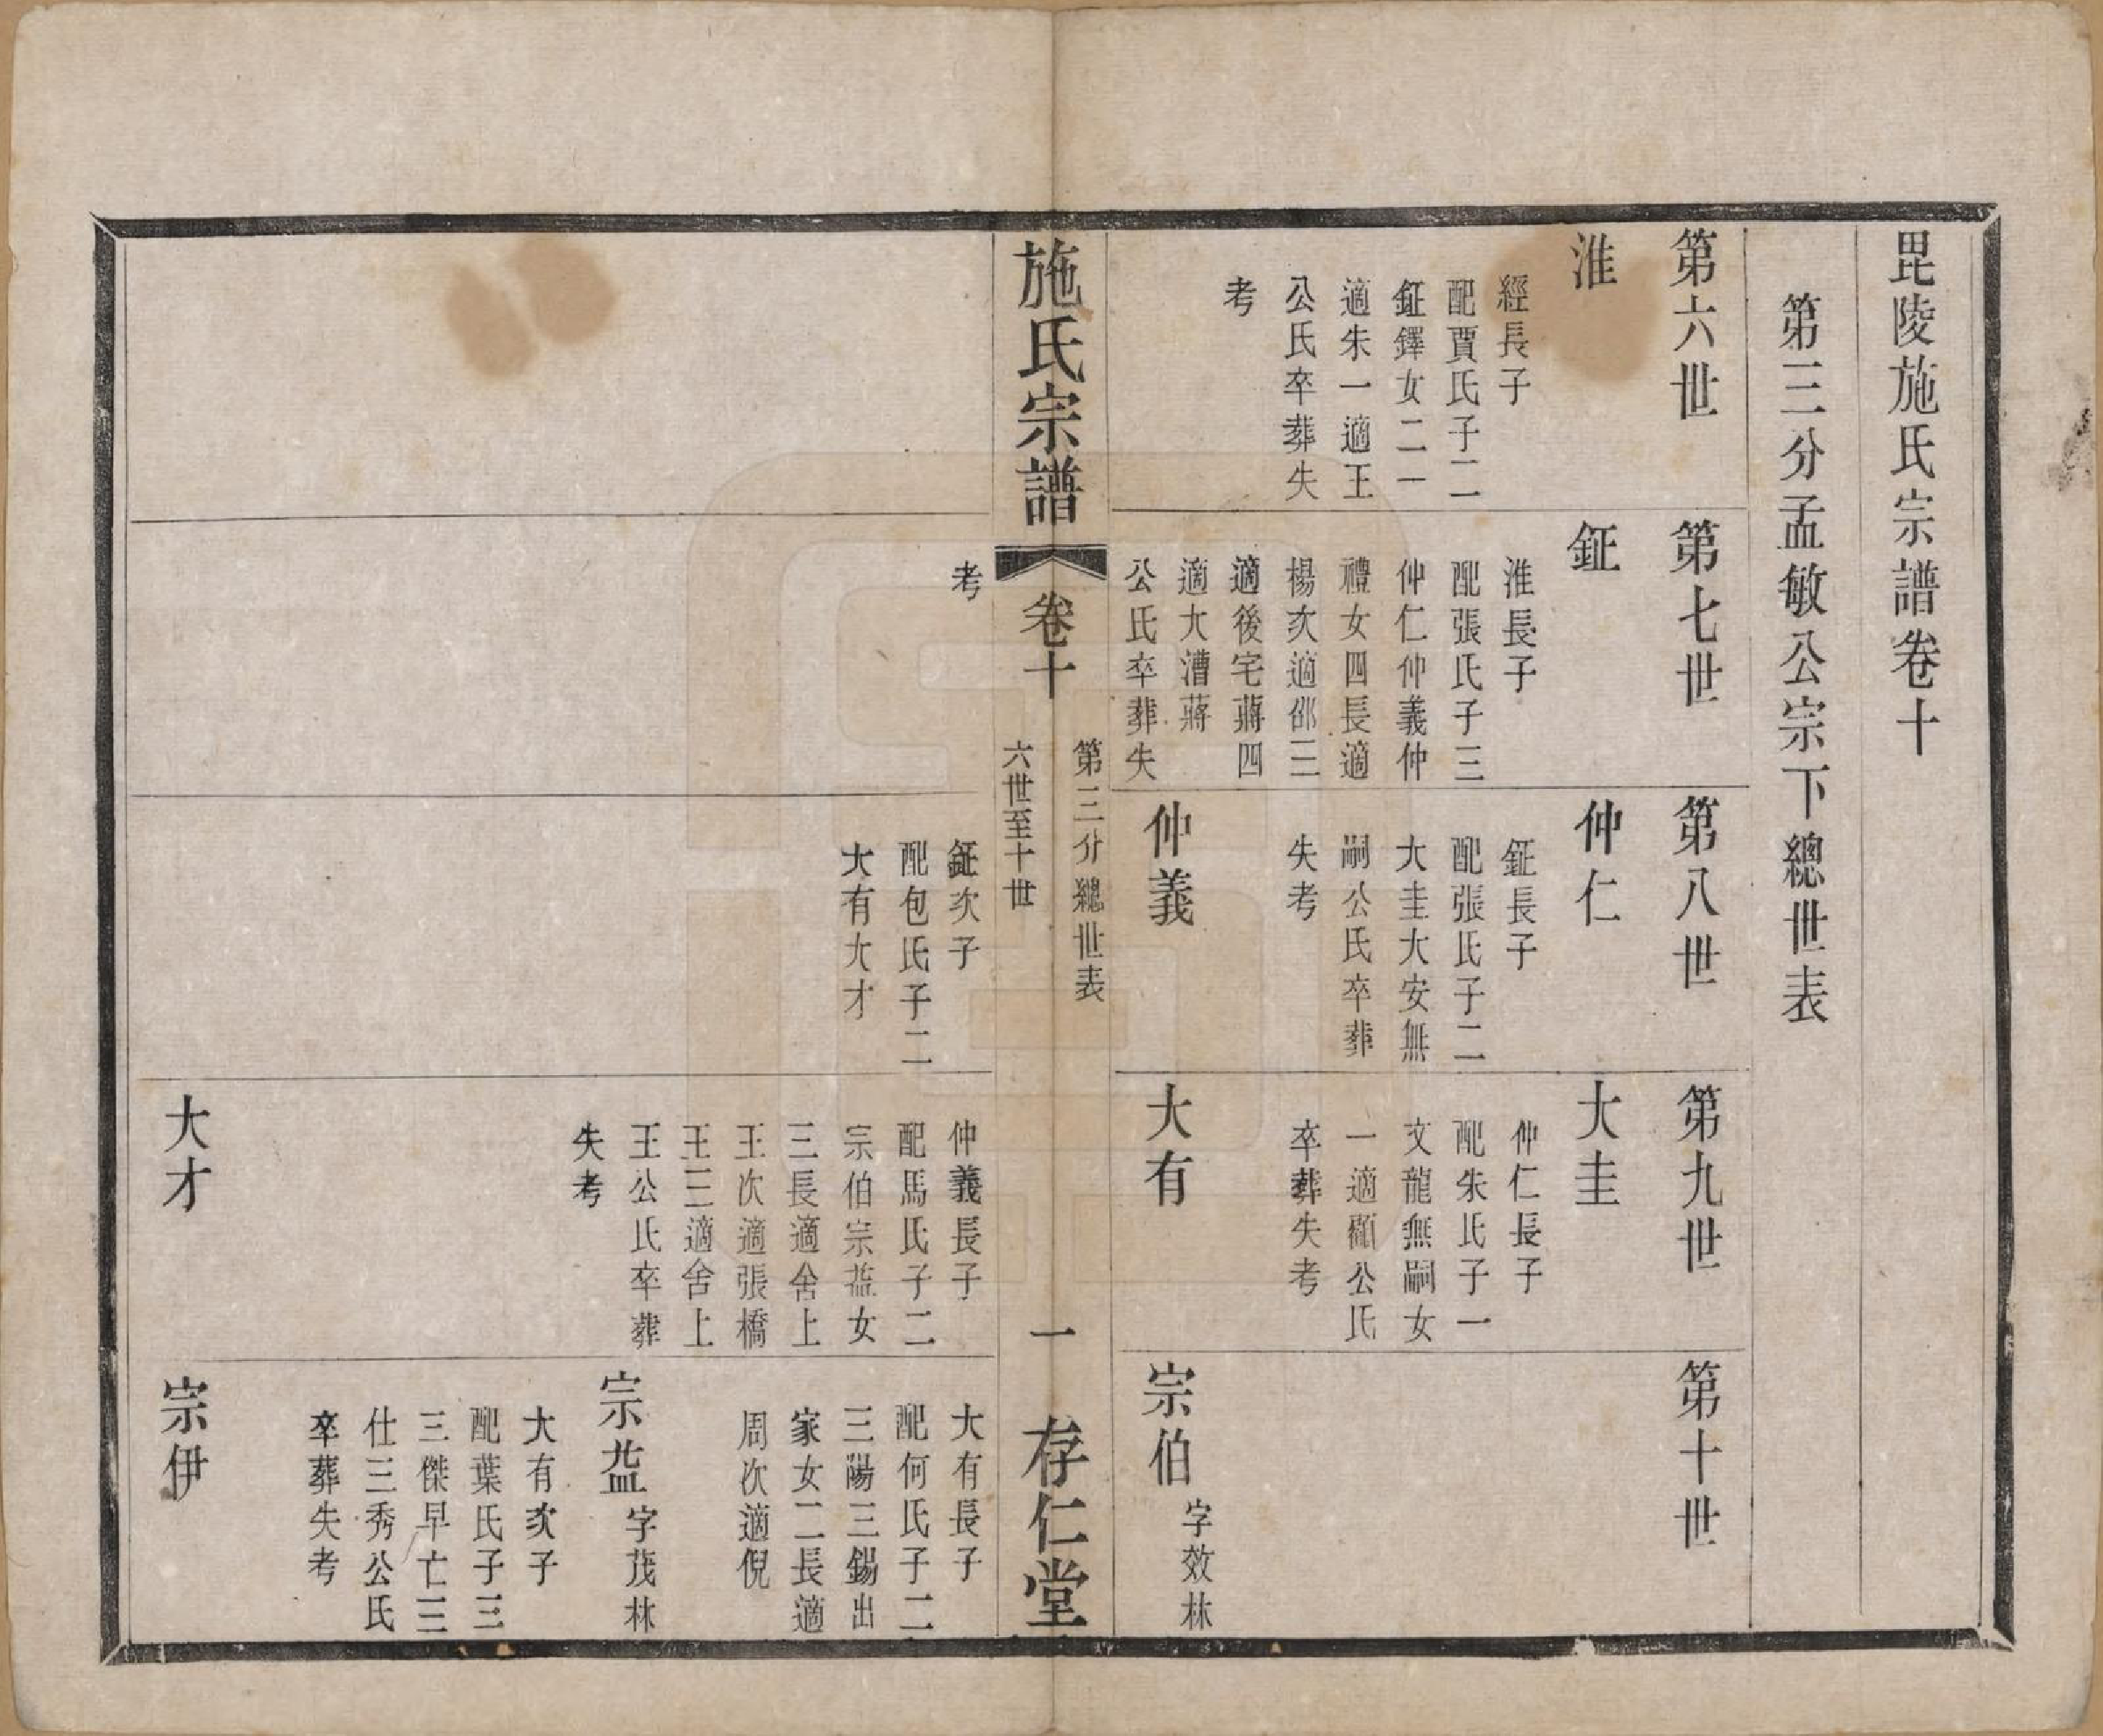 毘陵施氏宗譜卷十
第三分孟敏公宗下總世表
第六世
淮
經長子
配賈氏子二
鉦鐸女二一
適朱一適王
公氏卒葬失
考
第七世
鉦
淮長子
配張氏子三
仲仁仲義仲
禮女四長適
楊次適邵三
適後宅蔣四
適大漕蔣
公氏卒葬失
考
第八世
仲仁
鉦長子
配張氏子二
大圭大安無
嗣公氏卒葬
失考
仲義
鉦次子
配包氏子二
大有大才
第九世
大圭
仲仁長子
配朱氏子一
文龍無嗣女
一適顧公氏
卒葬失考
大有
仲義長子
配馬氏子二
宗伯宗益女
三長適舍上
王次適張橋
王三適舍上
王公氏卒葬
失考
大才
第十世
宗伯 字效林
大有長子
配何氏子二
三陽三錫出
家女二長適
周次適倪
宗益 字茂林
大有次子
配葉氏子三
三傑早亡三
仕三秀公氏
卒葬失考
宗伊
施氏宗譜
卷十
第三分總世表
六世至十世
一
存仁堂